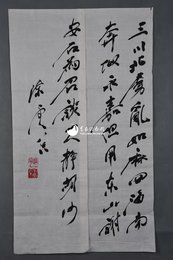 三川北虜亂如麻四海南
奔似永嘉但用东山謝
安石为君談笑靜胡沙